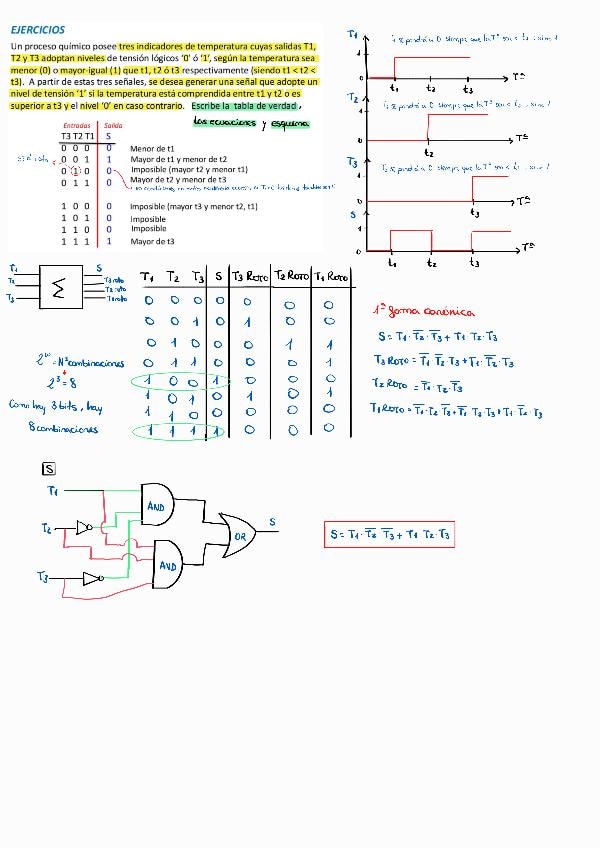 EJERCICIOS
Un proceso químico posee tres indicadores de temperatura cuyas salidas T1,
T2 y T3 adoptan niveles de tensión lógicos '0' ó '1', según la temperatura sea
menor (0) o mayor-igual (1) que t1, t2 ó t3 respectivamente (siendo t1 < t2 <
t3). A partir de estas tres señales, se desea generar una señal que adopte un
nivel de tensión '1' si la temperatura está comprendida entre t1 y t2 o es
superior a t3 y el nivel '0' en caso contrario. Escribe la tabla de verdad,
las ecuaciones y esquema
Entradas Salida
T3 T2 T1 S
0 0 0 0 Menor de t1
0 0 1 1 Mayor de t1 y menor de t2
0 1 0 0 Imposible (mayor t2 y menor t1)
0 1 1 0 Mayor de t2 y menor de t3
1 0 0 0 Imposible (mayor t3 y menor t2, t1)
1 0 1 0 Imposible
1 1 0 0 Imposible
1 1 1 1 Mayor de t3
T1
1
0
t1 t2 t3 Tª
T2
1
0
t2 Tª
T3
1
0
t3 Tª
S
1
0
t1 t2 t3 Tª
T1
T2
T3
Σ
S
T3 roto
T2 roto
T1 roto
2ⁿ = Nº combinaciones
2³ = 8
Como hay 3 bits, hay
8 combinaciones
T1 T2 T3 S T3 Roto T2 Roto T1 Roto
0 0 0 0 0 0 0
0 0 1 0 1 0 0
0 1 0 0 0 1 1
0 1 1 0 0 0 1
1 0 0 1 0 0 0
1 0 1 0 1 0 1
1 1 0 0 0 0 0
1 1 1 1 0 0 0
1ª forma canónica
S = T1 · T̅2 · T̅3 + T1 T2 · T3
T3 Roto = T̅1 · T̅2 T3 + T1 · T̅2 · T3
T2 Roto = T̅1 · T2 · T̅3
T1 Roto = T̅1 · T2 T̅3 + T̅1 T2 T3 + T1 · T̅2 · T3
S
T1
AND
T2
OR
S
AND
T3
S = T1 · T̅2 T̅3 + T1 T2 · T3